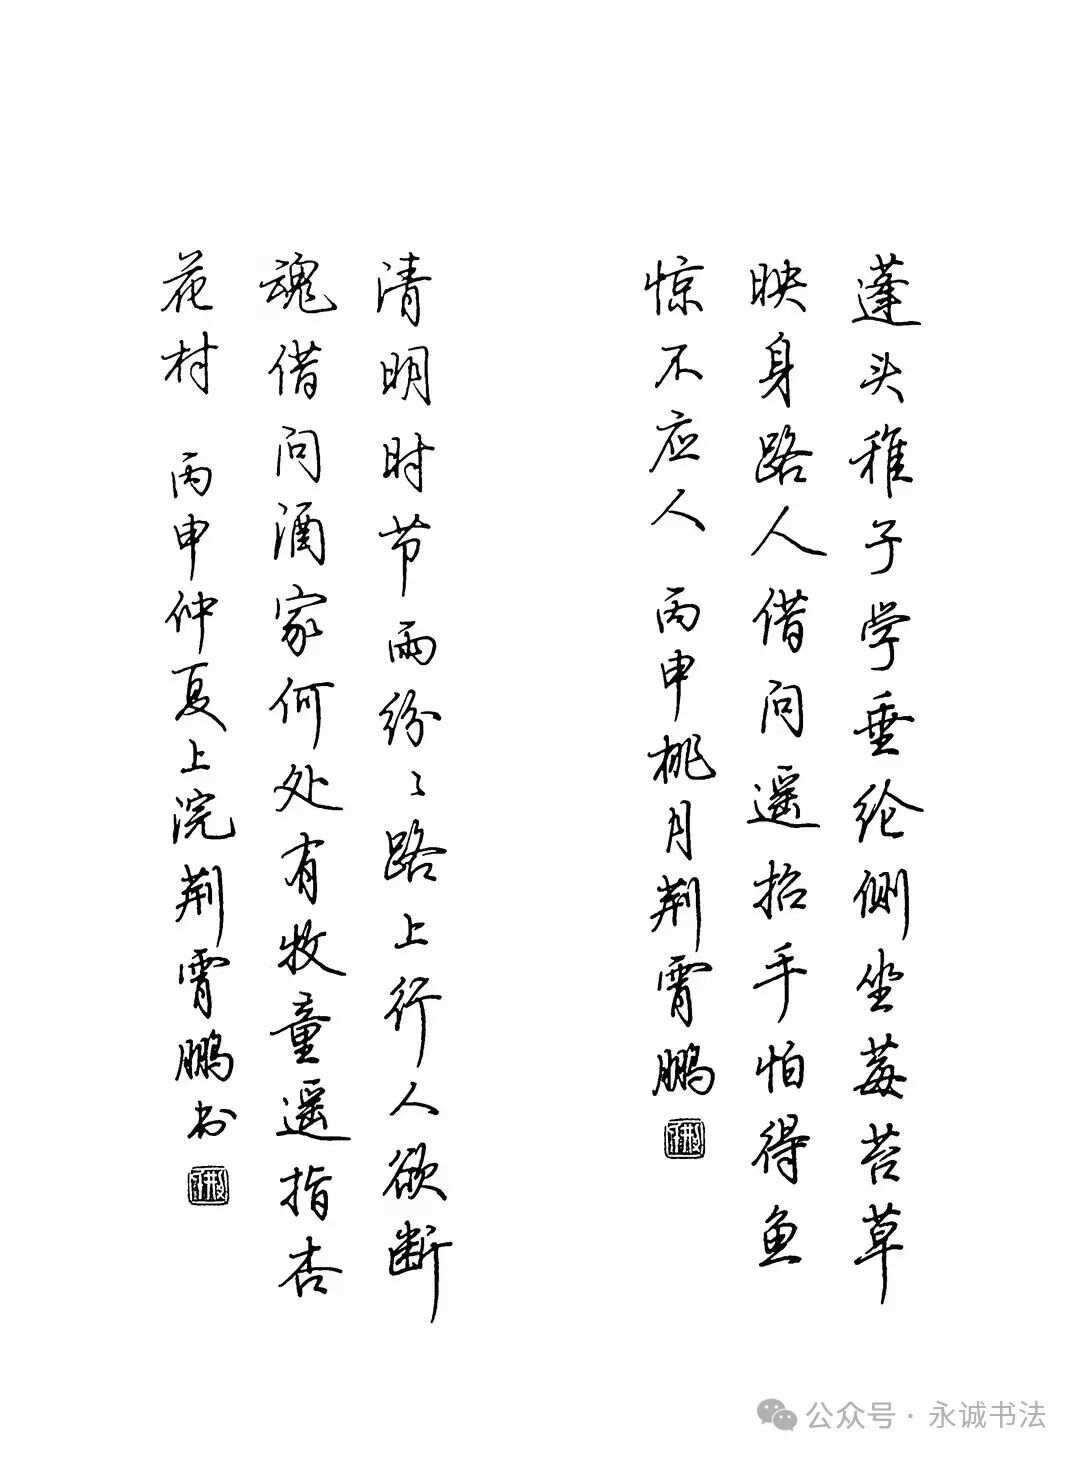 蓬头稚子学垂纶侧坐莓苔草
映身路人借问遥招手怕得鱼
惊不应人 丙申桃月荆霄鹏
清明时节雨纷〻路上行人欲断
魂借问酒家何处有牧童遥指杏
花村 丙申仲夏上浣荆霄鹏书
公众号 · 永诚书法